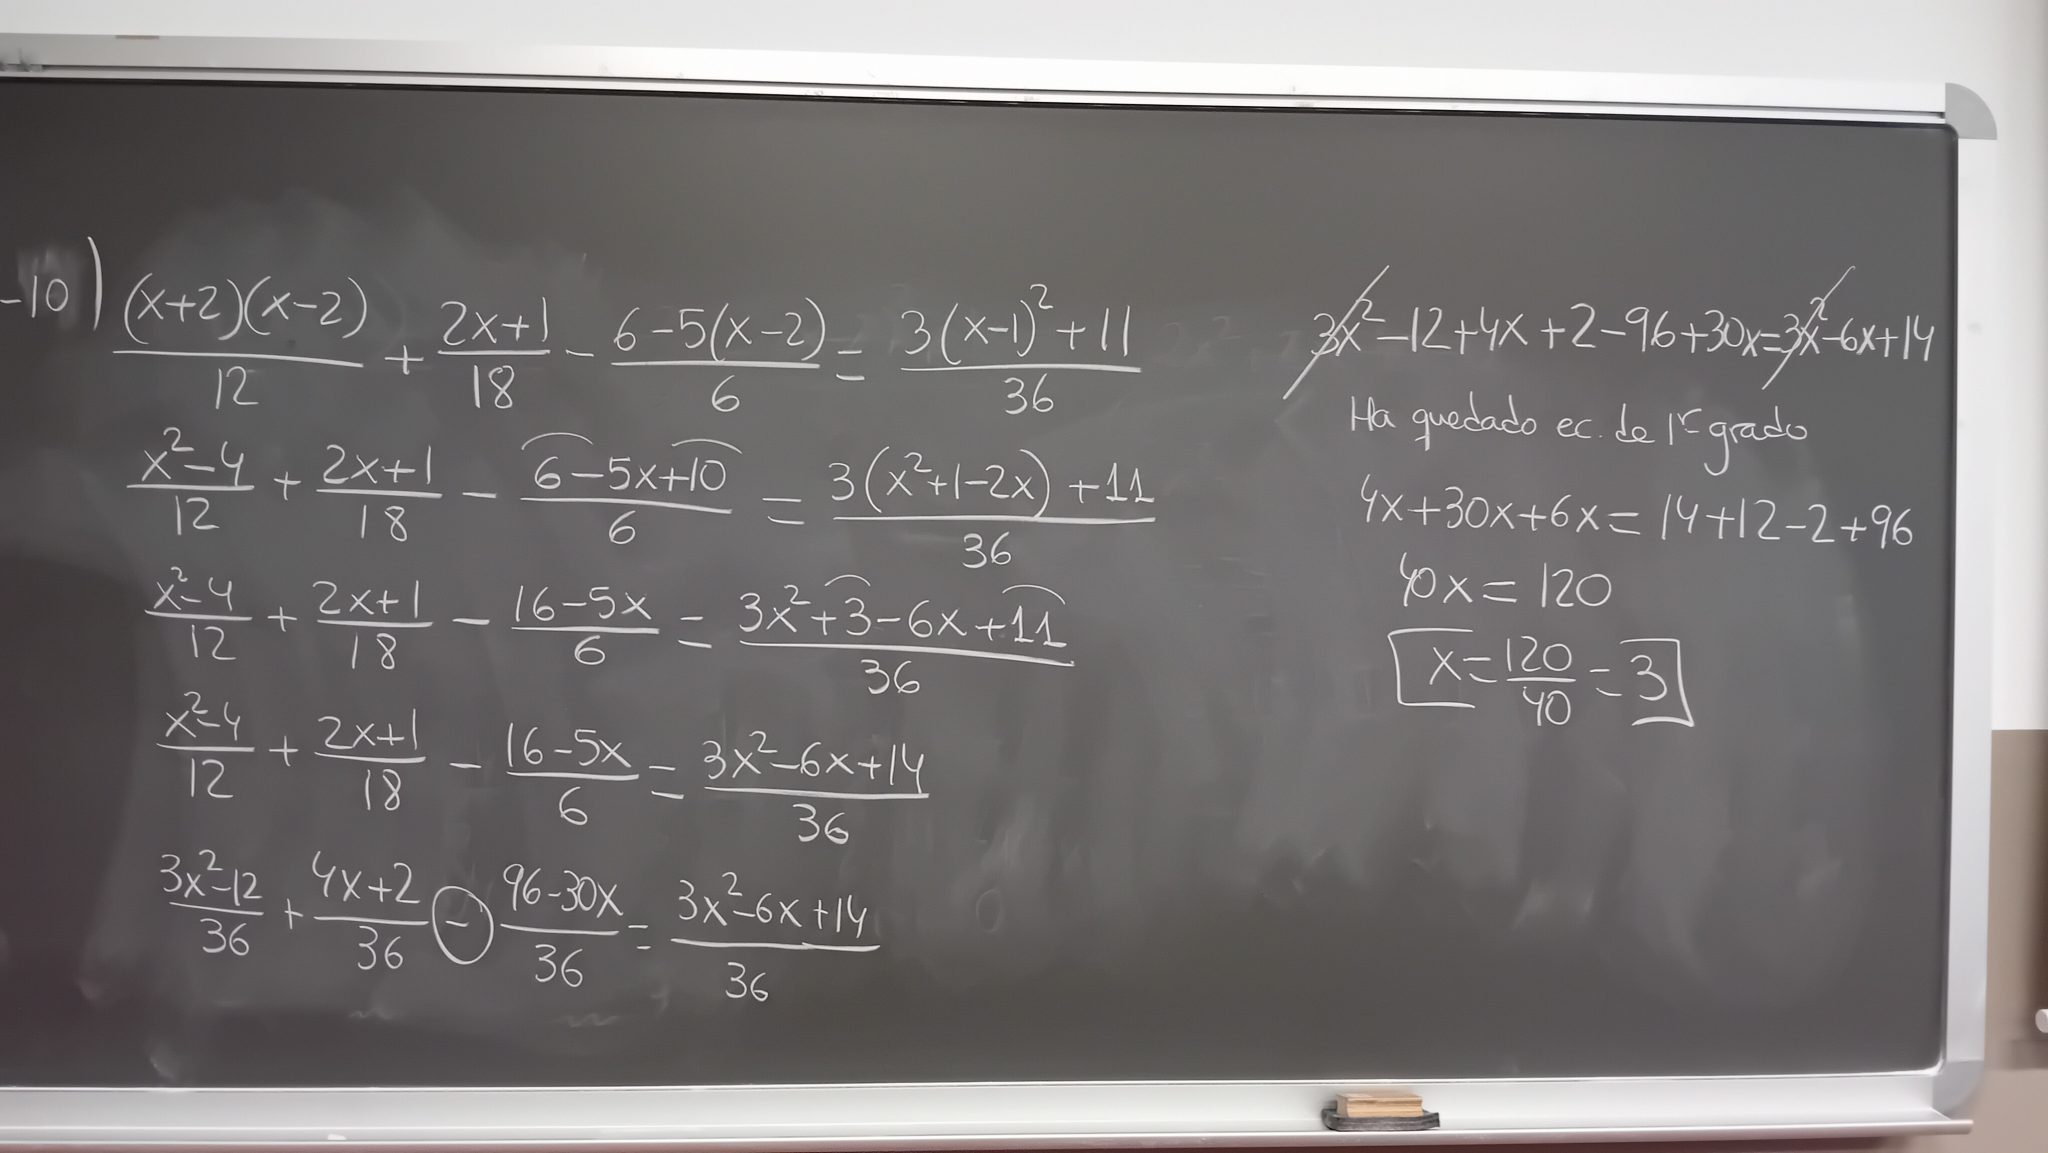 -10) (x+2)(x-2)/12 + 2x+1/18 - 6-5(x-2)/6 = 3(x-1)²+11/36
x²-4/12 + 2x+1/18 - 6-5x+10/6 = 3(x²+1-2x)+11/36
x²-4/12 + 2x+1/18 - 16-5x/6 = 3x²+3-6x+11/36
x²-4/12 + 2x+1/18 - 16-5x/6 = 3x²-6x+14/36
3x²-12/36 + 4x+2/36 - 96-30x/36 = 3x²-6x+14/36
3x²-12+4x+2-96+30x=3x²-6x+14
Ha quedado ec. de 1r grado
4x+30x+6x=14+12-2+96
40x=120
x=120/40=3